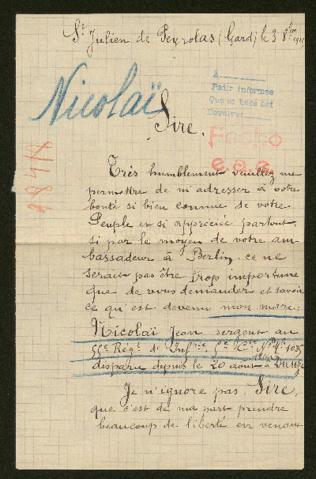 St Julien de Peyrolas (Gard) le 3 8bre
Nicolaï
Sire,
Très humblement veuillez me
permettre de m'adresser à votre
bonté si bien connue de votre
Peuple et si appréciée partout,
si par le moyen de votre am
bassadeur à Berlin, ce ne
serait pas être trop importune
que de vous demander et savoir
ce qu'est devenu mon mari
Nicolaï Jean sergent au
55e Régt d'Infie
disparu depuis le 20 août à Dieuze
Je n'ignore pas, Sire,
que c'est de ma part prendre
beaucoup de liberté en venant